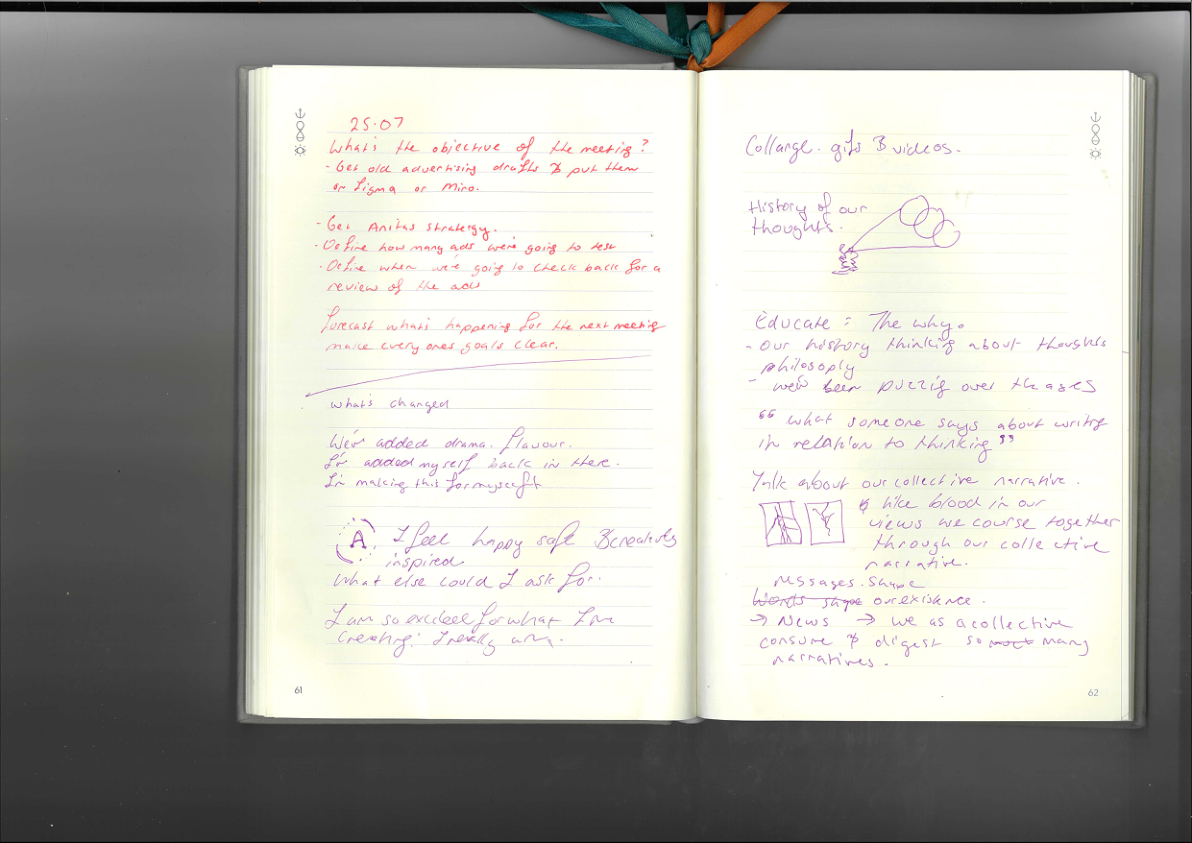 25.07
What's the objective of the meeting?
- Get old advertising drafts & put them
on Figma or Miro.
- Get Anitas stratergy.
- Define how many ads we're going to test
- Define when we're going to check back for a
review of the ads
forecast what's happening for the next meeting
make everyones goals clear.
what's changed
We've added drama. flavour.
I've added myself back in there.
I'm making this for myself
A I feel happy safe & creatively
inspired
What else could I ask for.
I am so excited for what I'm
creating. I really am.
61
Collarge. gifs & videos.
History of our
thoughts.
Educate = The why.
- our history thinking about thoughts
philosophy
- we've been puzzlig over the ages
"what someone says about writing
in relation to thinking"
Talk about our collective narrative.
like blood in our
views we course together
through our collective
narrative.
Messages. Shape
Words shape our existence.
→ News → we as a collective
consume & digest so most many
narratives.
62